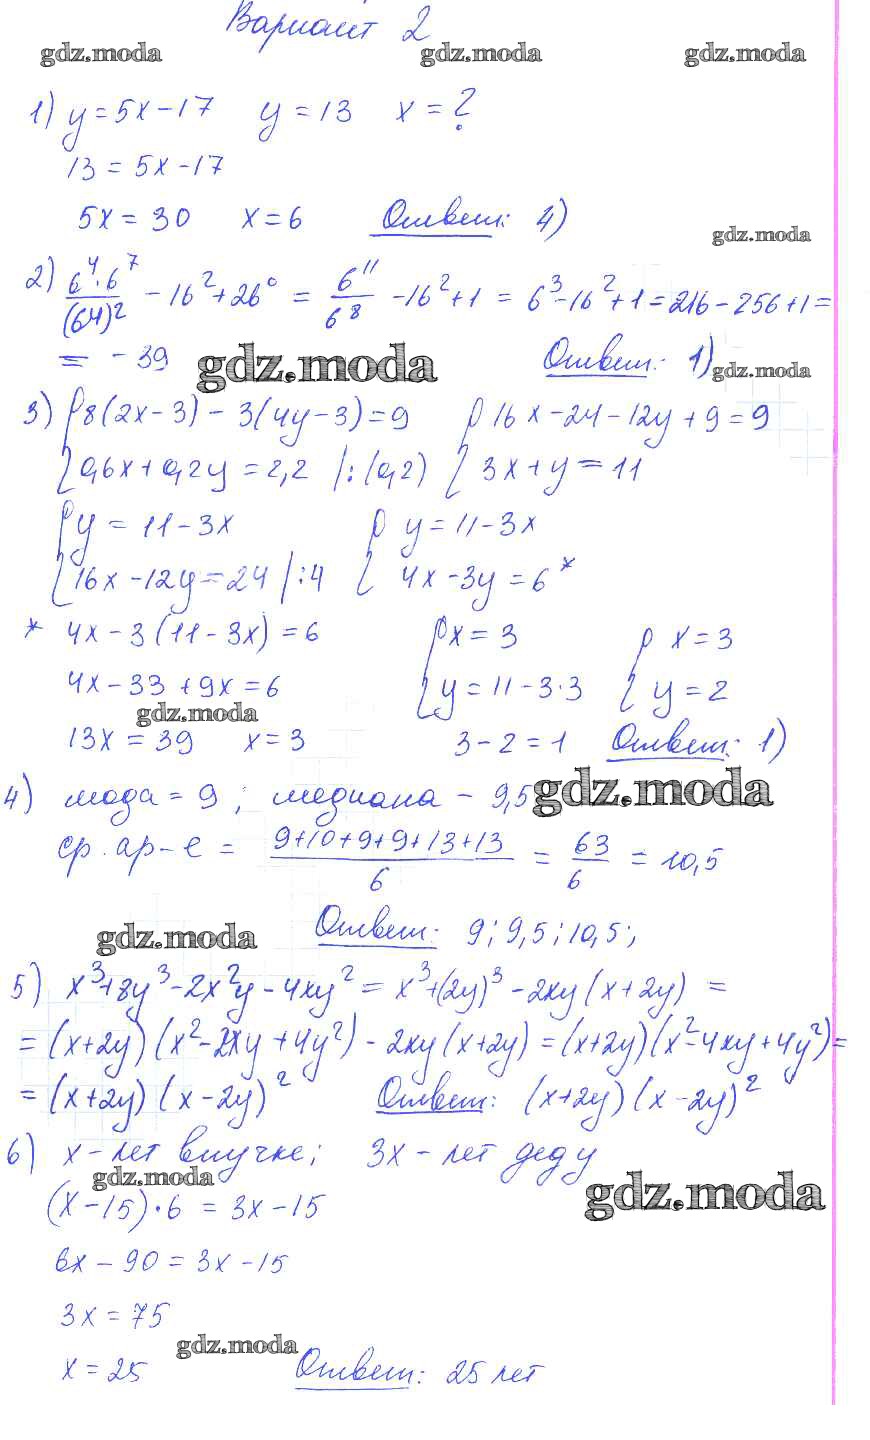 Вариант 2
gdz.moda gdz.moda gdz.moda
1) y = 5x - 17 y = 13 x = ?
13 = 5x - 17
5x = 30 x = 6 Ответ: 4)
gdz.moda
2) \frac{6^4 \cdot 6^7}{(6^4)^2} - 16^2 + 26^0 = \frac{6^{11}}{6^8} - 16^2 + 1 = 6^3 - 16^2 + 1 = 216 - 256 + 1 =
= - 39 gdz.moda Ответ: 1) gdz.moda
3) { 8(2x - 3) - 3(4y - 3) = 9 { 16x - 24 - 12y + 9 = 9
0,6x + 0,2y = 2,2 |:(0,2) 3x + y = 11
{ y = 11 - 3x { y = 11 - 3x
16x - 12y = 24 |:4 4x - 3y = 6 *
* 4x - 3(11 - 3x) = 6 { x = 3 { x = 3
4x - 33 + 9x = 6 y = 11 - 3·3 y = 2
gdz.moda
13x = 39 x = 3 3 - 2 = 1 Ответ: 1)
4) мода = 9; медиана - 9,5 gdz.moda
ср. ар-е = \frac{9+10+9+9+13+13}{6} = \frac{63}{6} = 10,5
gdz.moda Ответ: 9; 9,5; 10,5;
5) x^3 + 8y^3 - 2x^2y - 4xy^2 = x^3 + (2y)^3 - 2xy(x + 2y) =
= (x + 2y)(x^2 - 2xy + 4y^2) - 2xy(x + 2y) = (x + 2y)(x^2 - 4xy + 4y^2) =
= (x + 2y)(x - 2y)^2 Ответ: (x + 2y)(x - 2y)^2
6) x - лет внучке; 3x - лет деду
gdz.moda gdz.moda
(x - 15)·6 = 3x - 15
6x - 90 = 3x - 15
3x = 75
gdz.moda
x = 25 Ответ: 25 лет